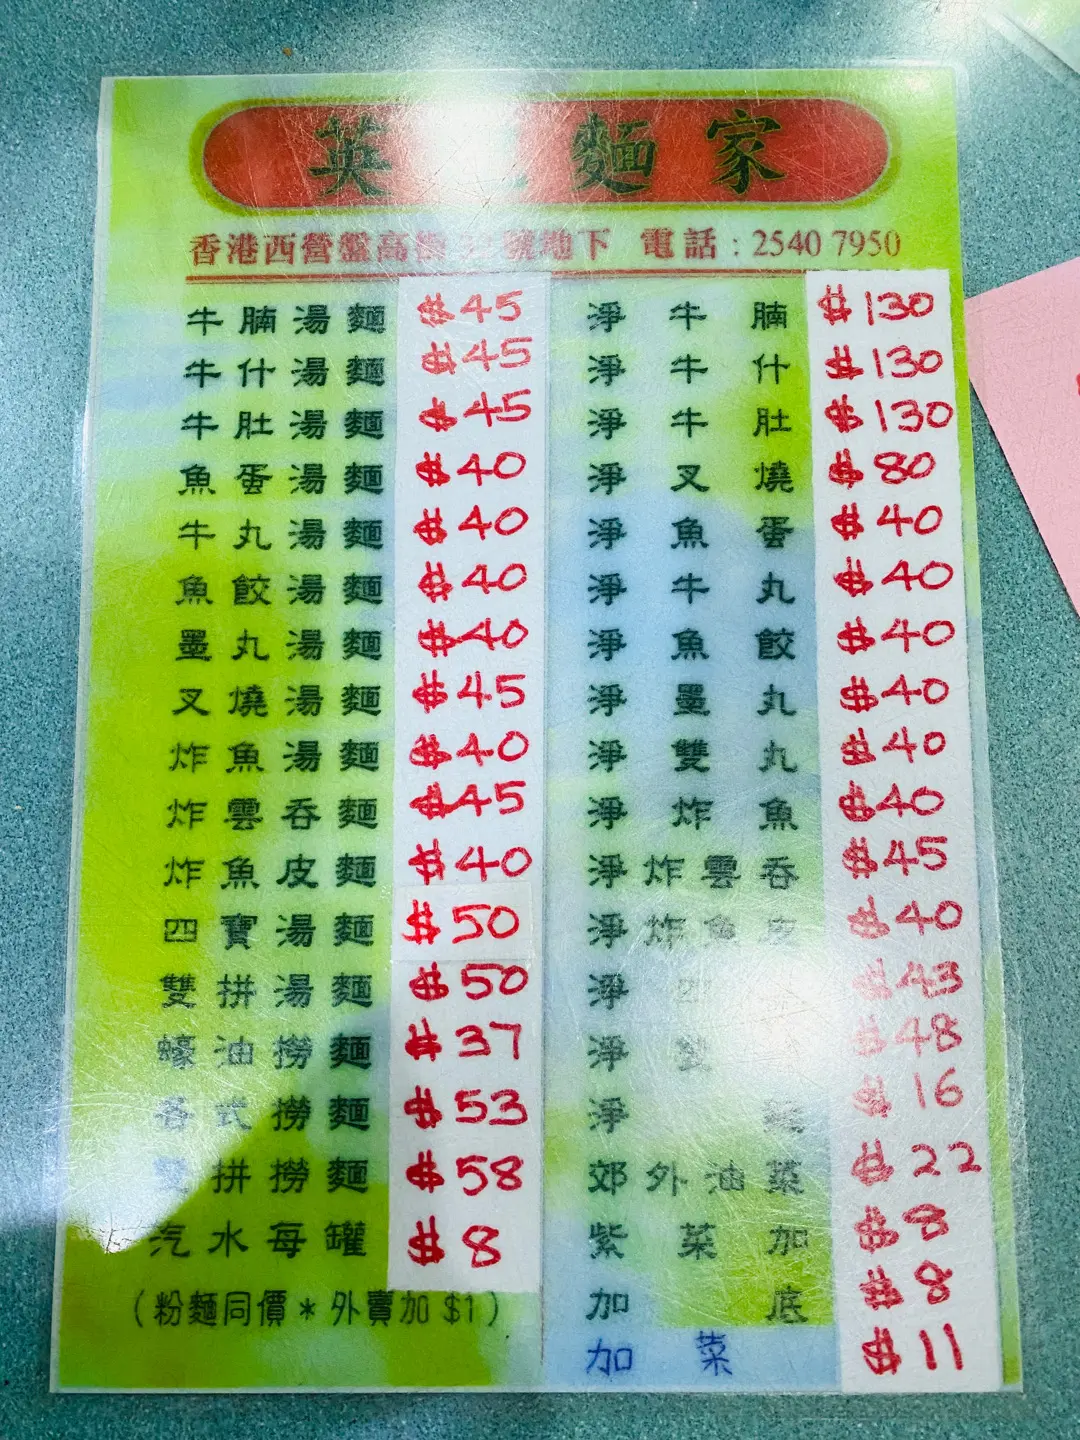 英 麵家
香港西營盤高街 號地下 電話：2540 7950
牛腩湯麵 $45
牛什湯麵 $45
牛肚湯麵 $45
魚蛋湯麵 $40
牛丸湯麵 $40
魚餃湯麵 $40
墨丸湯麵 $40
叉燒湯麵 $45
炸魚湯麵 $40
炸雲吞麵 $45
炸魚皮麵 $40
四寶湯麵 $50
雙拼湯麵 $50
蠔油撈麵 $37
各式撈麵 $53
拼撈麵 $58
汽水每罐 $8
（粉麵同價＊外賣加 $1）
淨牛腩 $130
淨牛什 $130
淨牛肚 $130
淨叉燒 $80
淨魚蛋 $40
淨牛丸 $40
淨魚餃 $40
淨墨丸 $40
淨雙丸 $40
淨炸魚 $40
淨炸雲吞 $45
淨炸魚皮 $40
淨四 $43
淨 $48
淨 $16
郊外油菜 $22
紫菜加 $8
加底 $8
加菜 $11